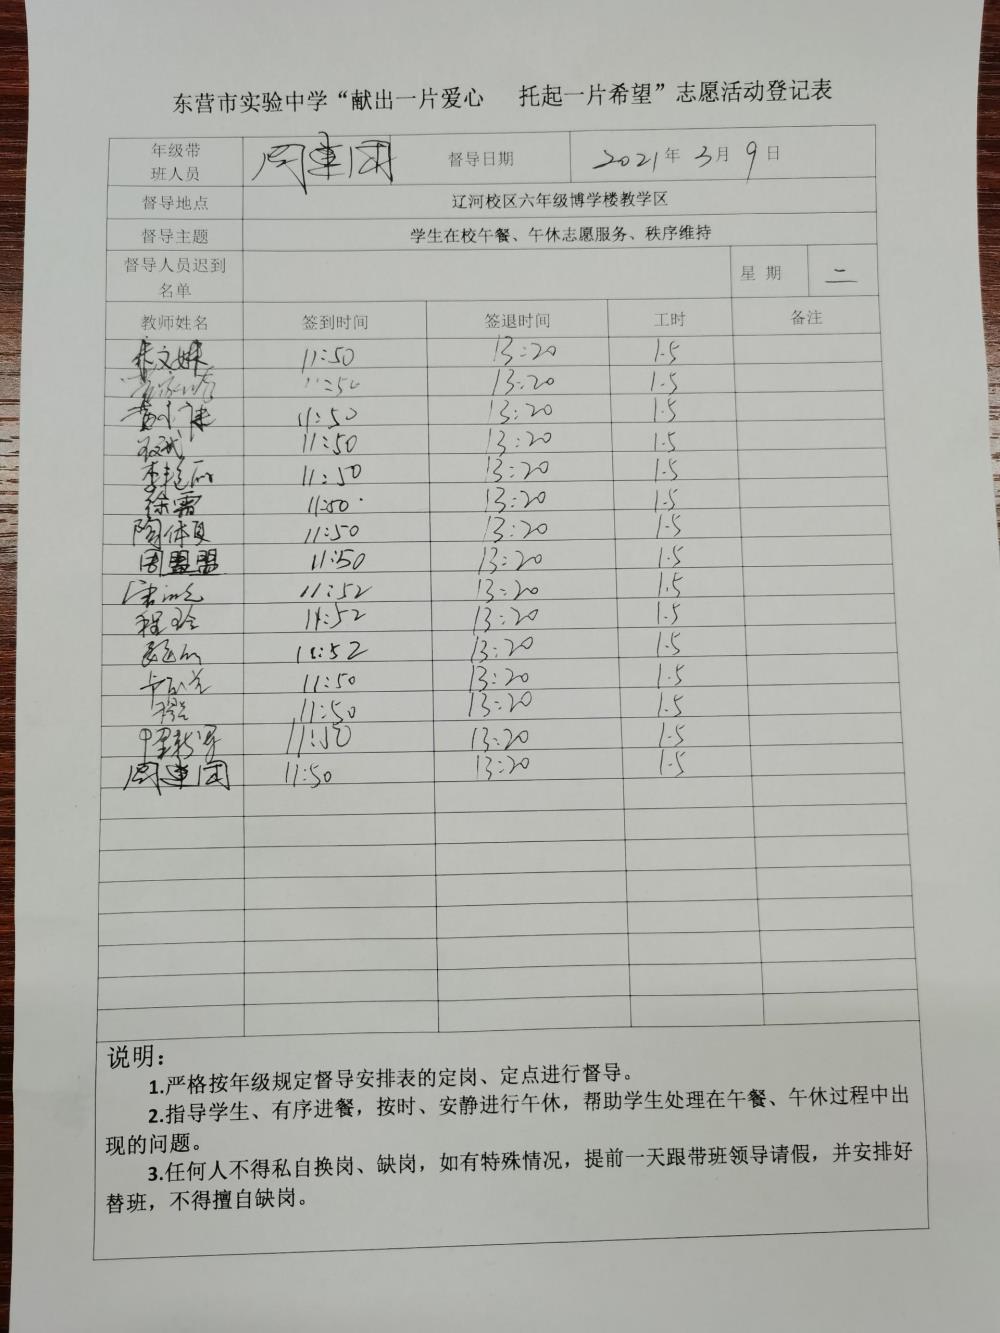 东营市实验中学“献出一片爱心 托起一片希望”志愿活动登记表
年级带班人员 周建团 督导日期 2021年3月9日
督导地点 辽河校区六年级博学楼教学区
督导主题 学生在校午餐、午休志愿服务、秩序维持
督导人员迟到名单 星 期 二
教师姓名 签到时间 签退时间 工时 备注
11:50 13:20 1.5
11:50 13:20 1.5
11:50 13:20 1.5
11:50 13:20 1.5
李艳丽 11:50 13:20 1.5
徐霞 11:50 13:20 1.5
11:50 13:20 1.5
周盟盟 11:50 13:20 1.5
11:52 13:20 1.5
程玲 11:52 13:20 1.5
11:52 13:20 1.5
11:50 13:20 1.5
11:50 13:20 1.5
11:50 13:20 1.5
周建团 11:50 13:20 1.5
说明：
1.严格按年级规定督导安排表的定岗、定点进行督导。
2.指导学生、有序进餐，按时、安静进行午休，帮助学生处理在午餐、午休过程中出
现的问题。
3.任何人不得私自换岗、缺岗，如有特殊情况，提前一天跟带班领导请假，并安排好
替班，不得擅自缺岗。